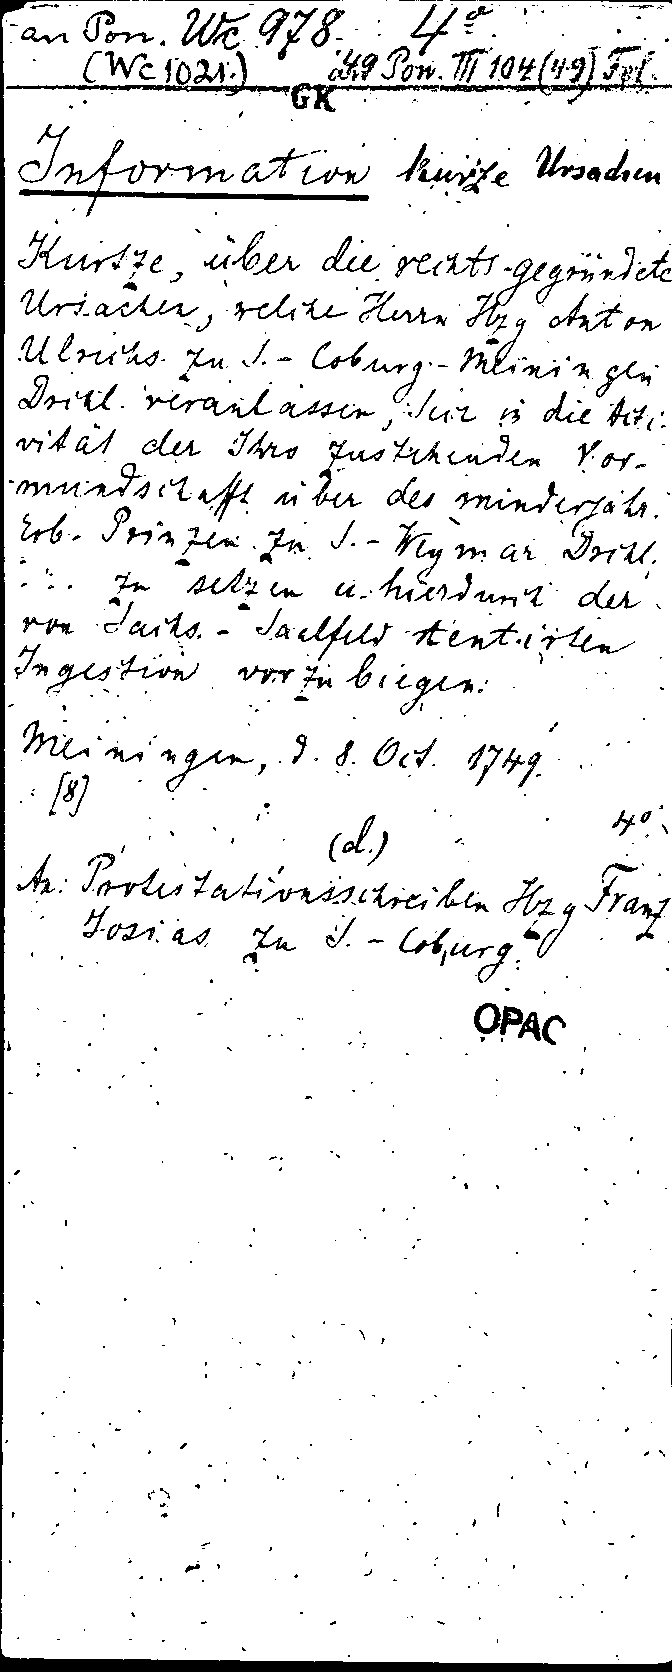 an Pon. Wc 978. 4º
(Wc 1021.) 49 Pon. III 104 (49) Fol.
GK
Information kurze Ursachen
Kurtze, über die rechts-gegründete
Ursachen, welche Herrn Hzg Anton
Ulrichs zu S.-Coburg-Meiningen
Drchl. veranlassen, Sich in die Acti-
vität der Ihro zustehenden Vor-
mundschafft über des minderjähr.
Erb-Prinzen zu S.-Weymar Drchl.
... zu setzen u. hierdurch der
von Sachs.-Saalfeld tentirten
Ingestion vorzubiegen.
Meiningen, d. 8. Oct. 1749.
[8]
4º
(d.)
An: Protestationsschreiben Hzg Franz
Josias zu S.-Coburg.
OPAC